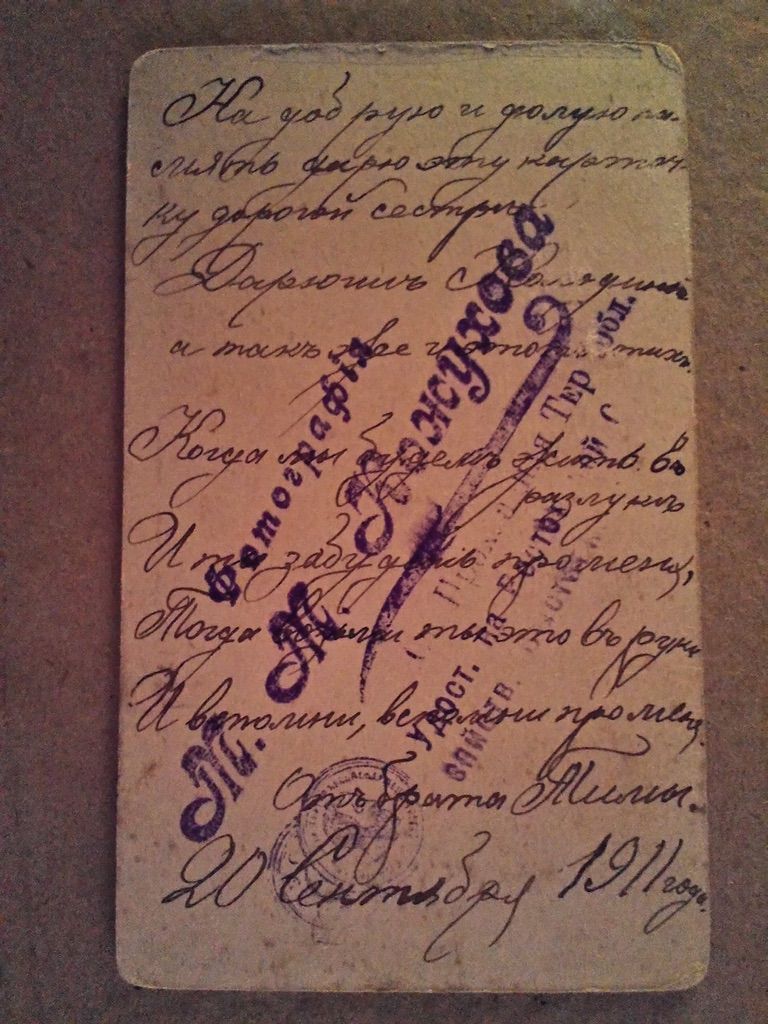 На добрую и долгую па-
мять дарю эту карточ-
ку дорогой сестры
Дарюшль с
а такъ же и этотъ стихъ.
Когда мы будемъ жить въ
разлукль
И ты забудешь про меня,
Тогда возьми ты это въ руки
И вспомни, вспомни про меня.
Отъ брата Тимы.
20 Сентября 1911 года.
Фотографія
М. Т. Кожухова
Тер. обл.
Удост. на